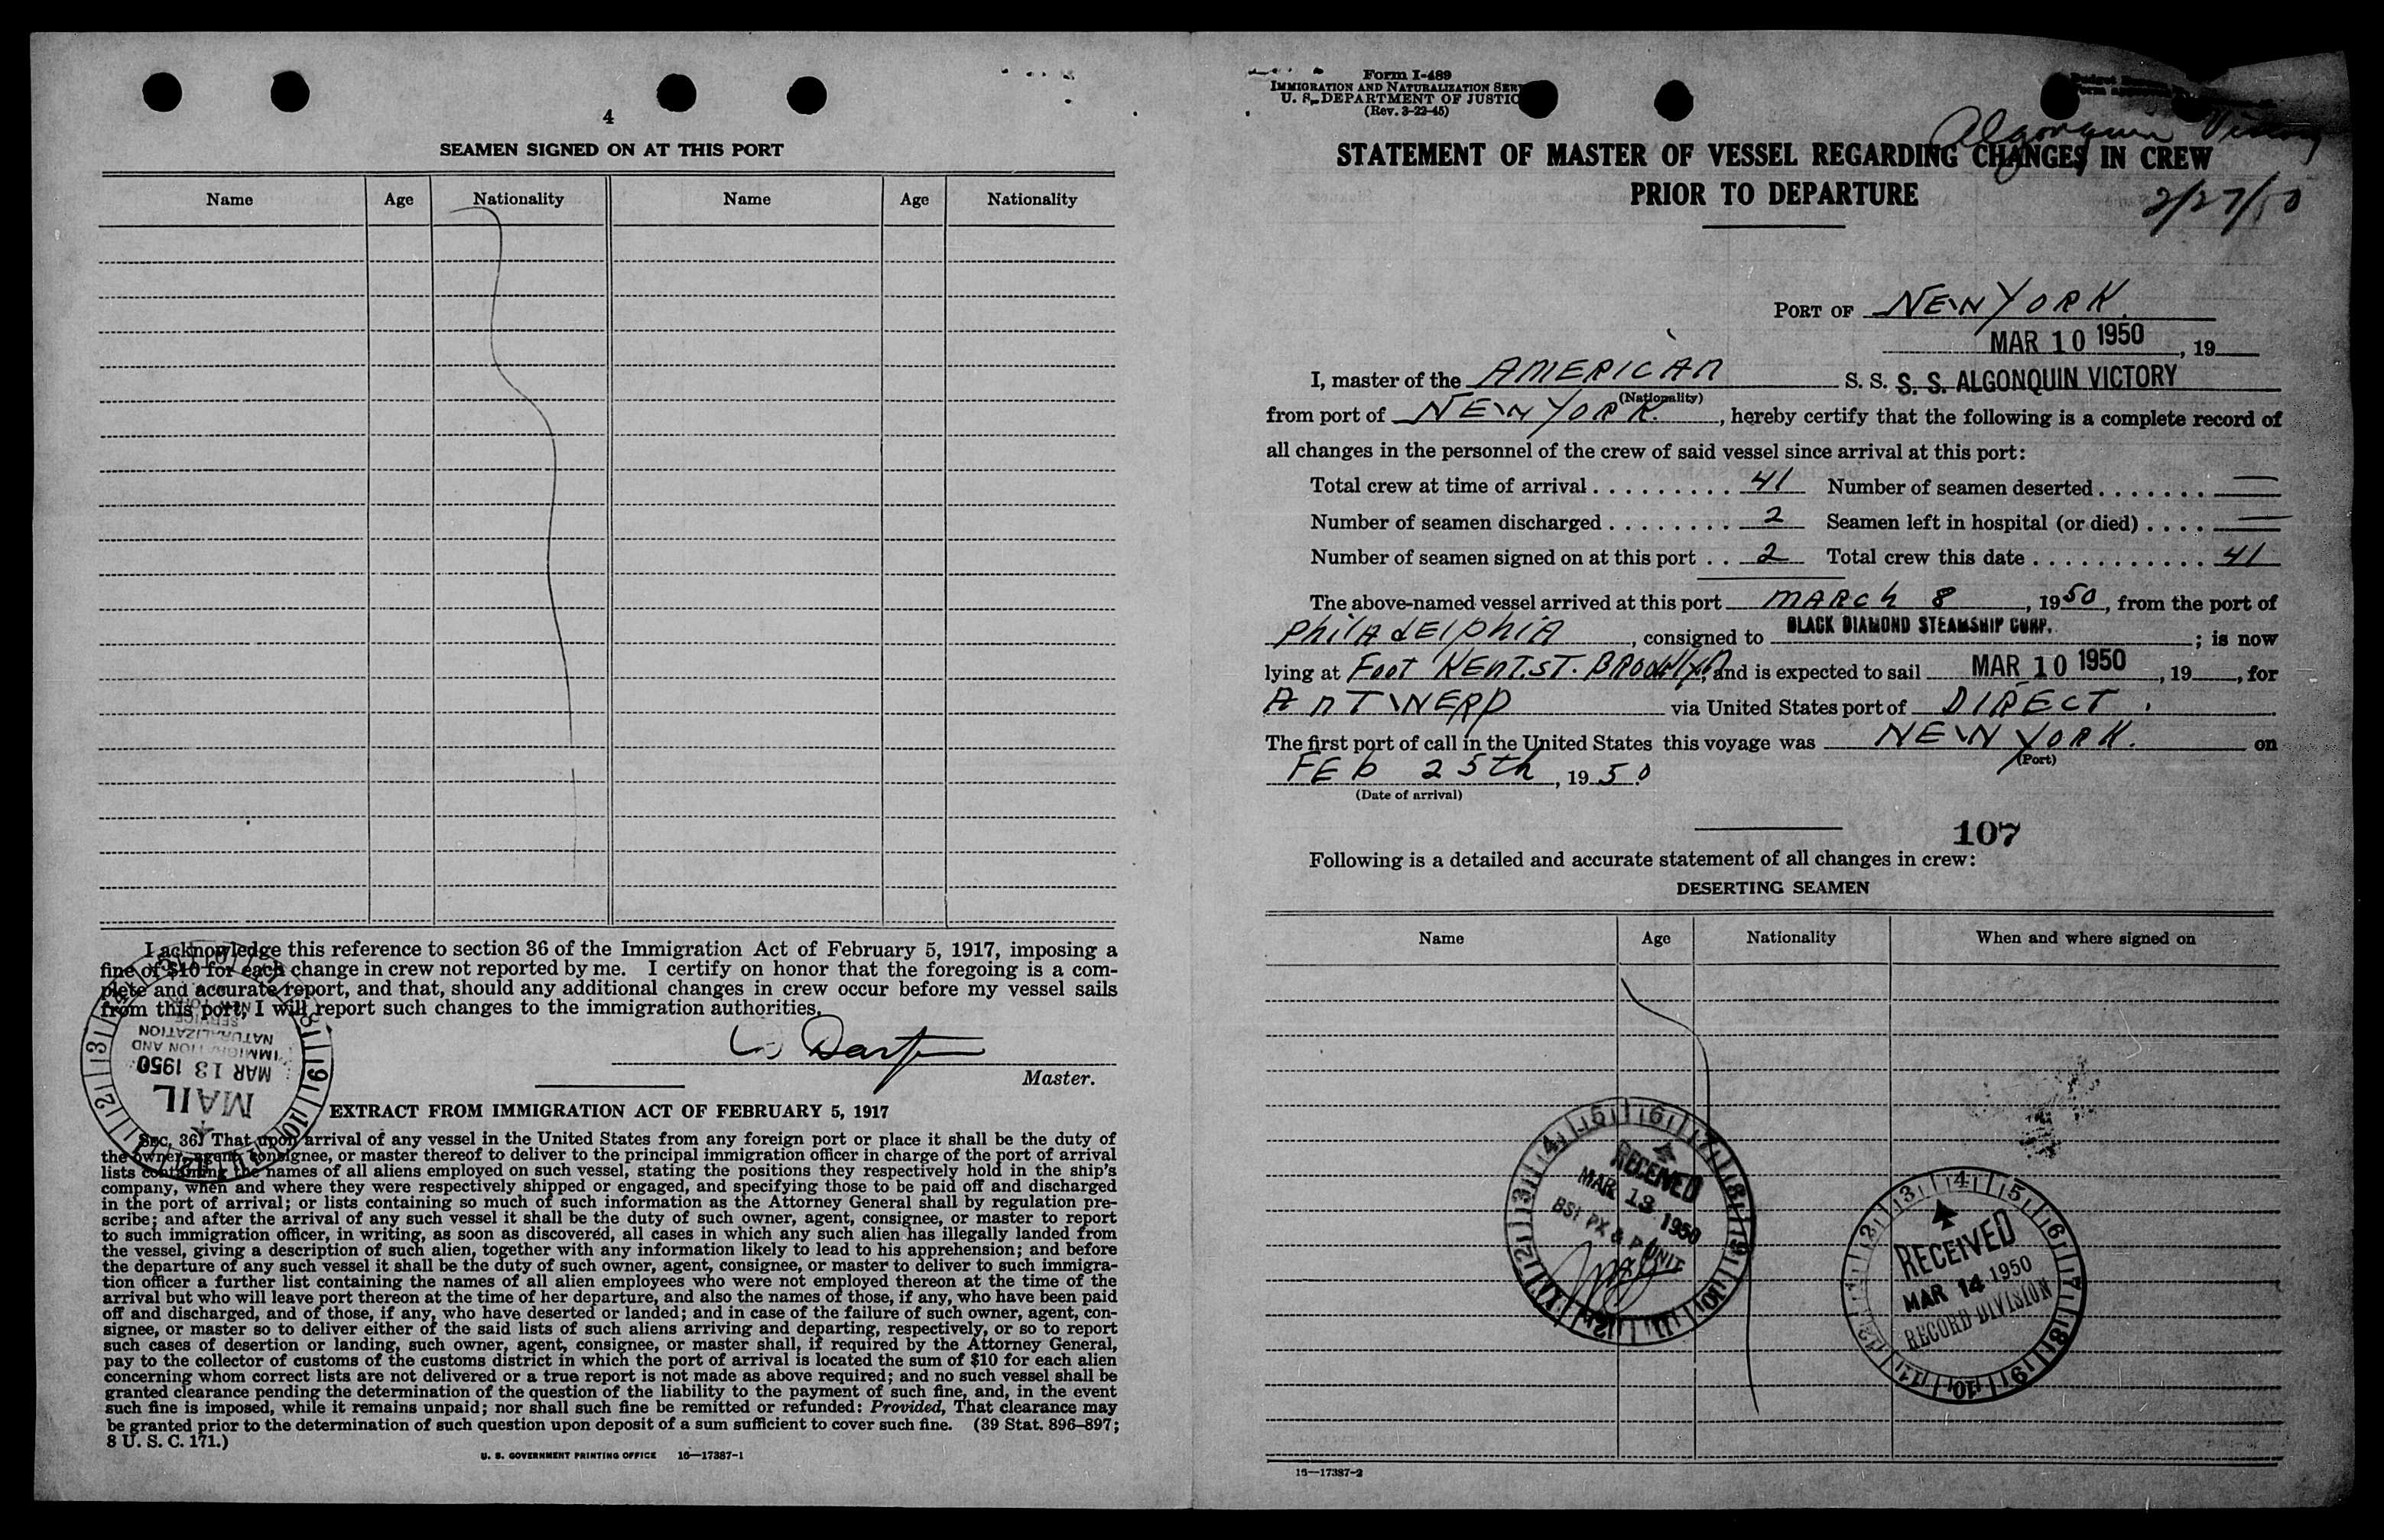 4
SEAMEN SIGNED ON AT THIS PORT
Name Age Nationality Name Age Nationality
I acknowledge this reference to section 36 of the Immigration Act of February 5, 1917, imposing a
fine of $10 for each change in crew not reported by me. I certify on honor that the foregoing is a com-
plete and accurate report, and that, should any additional changes in crew occur before my vessel sails
from this port, I will report such changes to the immigration authorities.
Master.
IMMIGRATION AND
NATURALIZATION
SERVICE
NEW YORK
MAR 13 1950
MAIL
EXTRACT FROM IMMIGRATION ACT OF FEBRUARY 5, 1917
SEC. 36. That upon arrival of any vessel in the United States from any foreign port or place it shall be the duty of
the owner, agent, consignee, or master thereof to deliver to the principal immigration officer in charge of the port of arrival
lists containing the names of all aliens employed on such vessel, stating the positions they respectively hold in the ship's
company, when and where they were respectively shipped or engaged, and specifying those to be paid off and discharged
in the port of arrival; or lists containing so much of such information as the Attorney General shall by regulation pre-
scribe; and after the arrival of any such vessel it shall be the duty of such owner, agent, consignee, or master to report
to such immigration officer, in writing, as soon as discovered, all cases in which any such alien has illegally landed from
the vessel, giving a description of such alien, together with any information likely to lead to his apprehension; and before
the departure of any such vessel it shall be the duty of such owner, agent, consignee, or master to deliver to such immigra-
tion officer a further list containing the names of all alien employees who were not employed thereon at the time of the
arrival but who will leave port thereon at the time of her departure, and also the names of those, if any, who have been paid
off and discharged, and of those, if any, who have deserted or landed; and in case of the failure of such owner, agent, con-
signee, or master so to deliver either of the said lists of such aliens arriving and departing, respectively, or so to report
such cases of desertion or landing, such owner, agent, consignee, or master shall, if required by the Attorney General,
pay to the collector of customs of the customs district in which the port of arrival is located the sum of $10 for each alien
concerning whom correct lists are not delivered or a true report is not made as above required; and no such vessel shall be
granted clearance pending the determination of the question of the liability to the payment of such fine, and, in the event
such fine is imposed, while it remains unpaid; nor shall such fine be remitted or refunded: Provided, That clearance may
be granted prior to the determination of such question upon deposit of a sum sufficient to cover such fine. (39 Stat. 896–897;
8 U. S. C. 171.)
U. S. GOVERNMENT PRINTING OFFICE 16—17387-1
Form I-489
IMMIGRATION AND NATURALIZATION SER
U. S. DEPARTMENT OF JUSTIC
(Rev. 3-22-45)
Algonquin Victory
STATEMENT OF MASTER OF VESSEL REGARDING CHANGES IN CREW
PRIOR TO DEPARTURE
2/27/50
PORT OF NEW YORK.
MAR 10 1950, 19
I, master of the AMERICAN S. S. S. S. ALGONQUIN VICTORY
(Nationality)
from port of NEW YORK., hereby certify that the following is a complete record of
all changes in the personnel of the crew of said vessel since arrival at this port:
Total crew at time of arrival . . . . . . . . . 41 Number of seamen deserted . . . . . . . —
Number of seamen discharged . . . . . . . . 2 Seamen left in hospital (or died) . . . . —
Number of seamen signed on at this port . . 2 Total crew this date . . . . . . . . . . . 41
The above-named vessel arrived at this port MARCH 8, 1950, from the port of
PhilAdElphiA, consigned to BLACK DIAMOND STEAMSHIP CORP.; is now
lying at Foot KENT.ST. BROOKLYN, and is expected to sail MAR 10 1950, 19, for
ANTWERP via United States port of DIRECT.
The first port of call in the United States this voyage was NEW YORK. on
(Port)
FEb 25th, 1950
(Date of arrival)
107
Following is a detailed and accurate statement of all changes in crew:
DESERTING SEAMEN
Name Age Nationality When and where signed on
RECEIVED
MAR 13 1950
BSI PX & P UNIT
RECEIVED
MAR 14 1950
RECORD DIVISION
16—17387-2